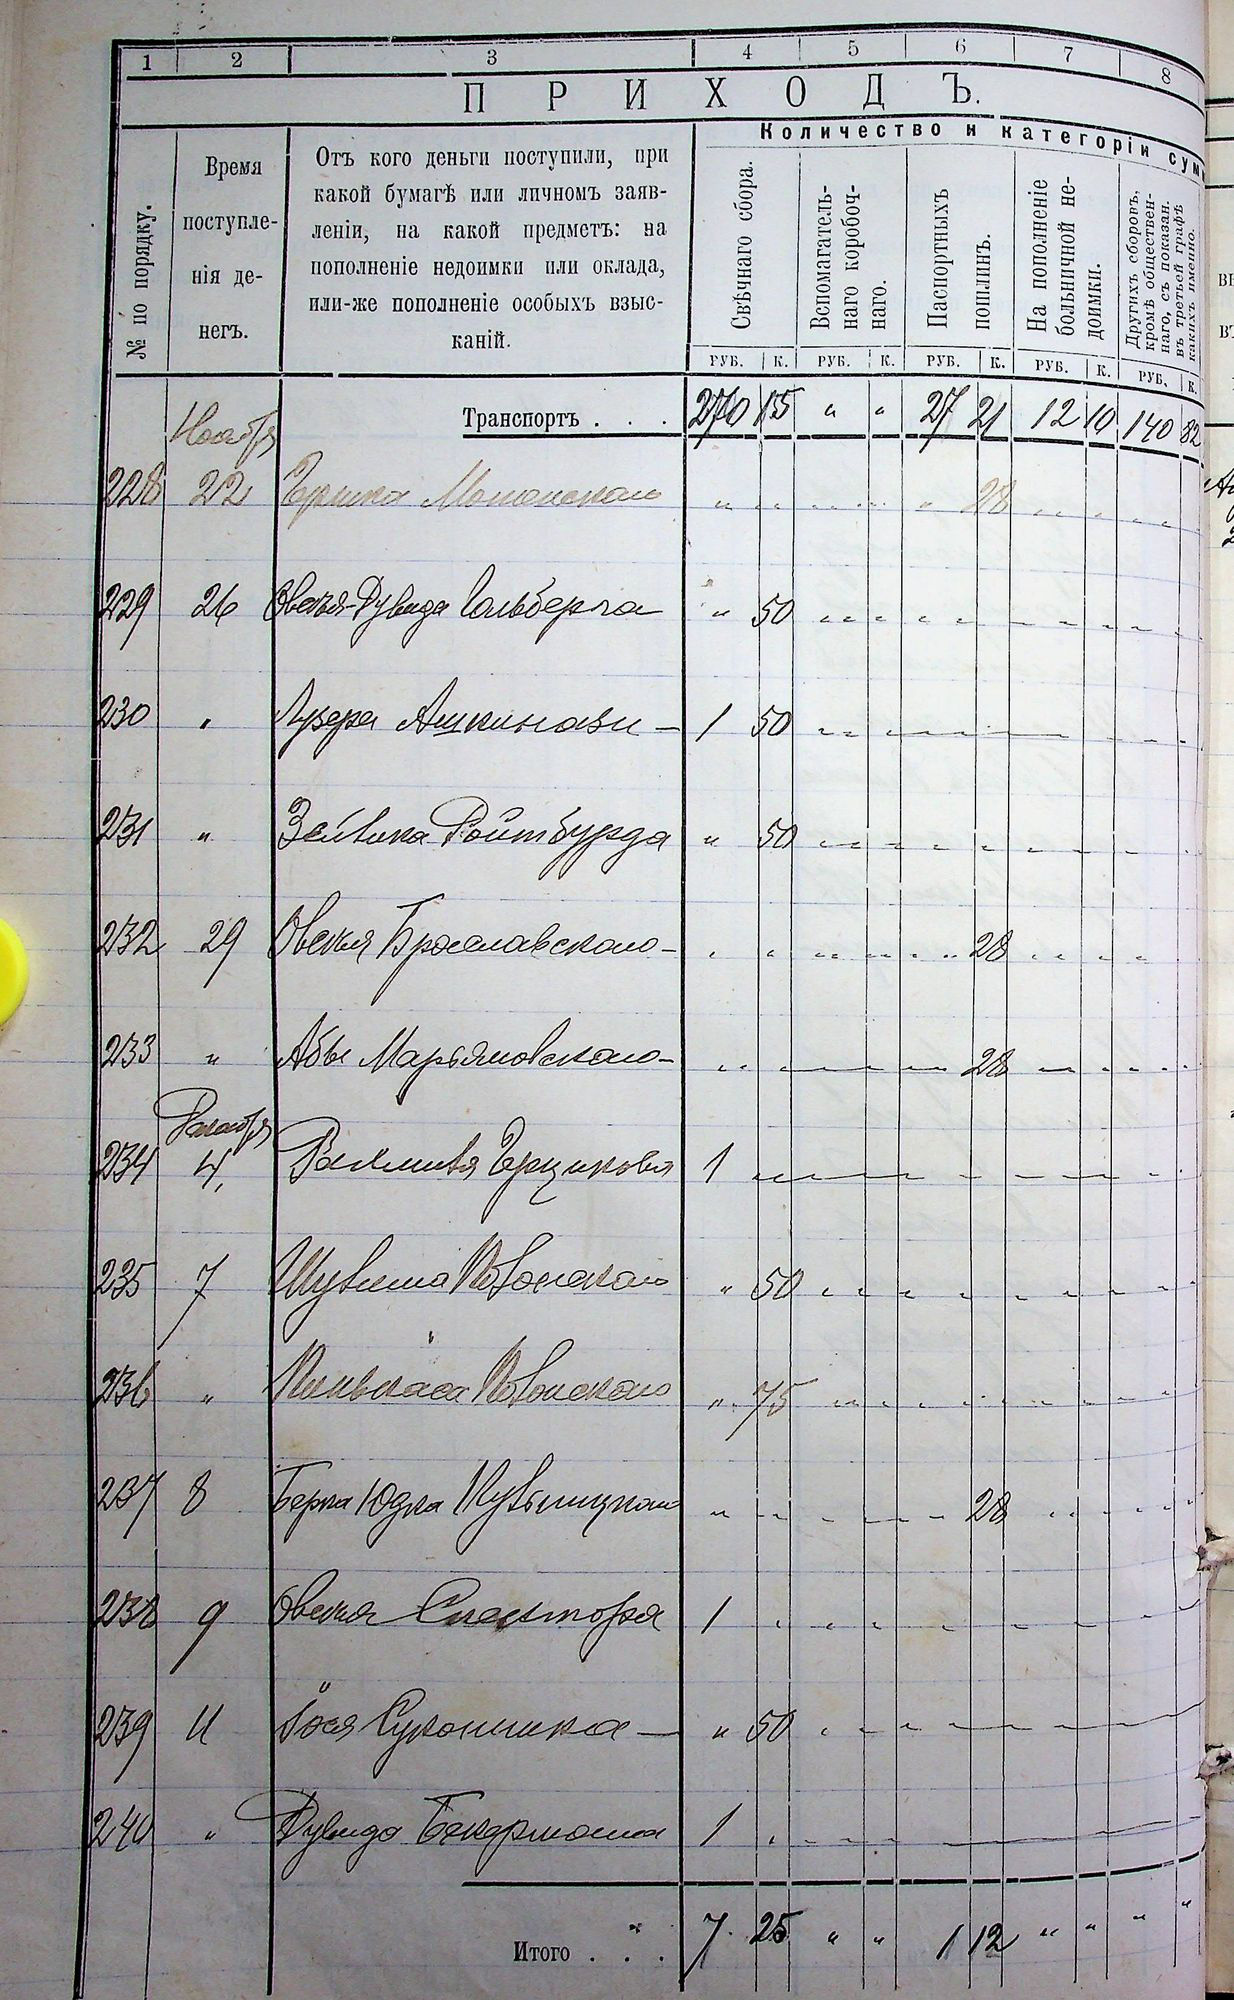 1 2 3 4 5 6 7 8
ПРИХОДЪ.
№ по порядку.
Время
поступле-
нія де-
негъ.
Отъ кого деньги поступили, при
какой бумагѣ или личномъ заяв-
леніи, на какой предметъ: на
пополненіе недоимки или оклада,
или-же пополненіе особыхъ взыс-
каній.
Количество и категоріи сум
Свѣчнаго сбора.
Вспомагатель-
наго коробоч-
наго.
Паспортныхъ
пошлинъ.
На пополненіе
больничной не-
доимки.
Другихъ сборовъ,
кромѣ обществен-
наго, съ показан.
въ третьей графѣ
какихъ именно.
РУБ. К. РУБ. К. РУБ. К. РУБ. К. РУБ. К.
Транспортъ . . . 270 15 " " 27 21 12 10 140 82
Ноября
228 22 Гершка " " " " " 28 " " " "
229 26 Овсея-Дувида Гольберга " 50 " " " " " " " "
230 " Лузера Ашкинази — 1 50
231 " Зейвика Ройтбурда " 50
232 29 Овсея Брославскаго — " " " " " 28
233 " Абы Марьяновскаго — " " 28
Декабря
234 4 Рахмиля 1
235 7 " 50
236 " " 75
237 8 Берка Юдка " " 28
238 9 Овсея Спектора 1
239 11 Іося " 50
240 " Дувида Бекермана 1
Итого . . . 7 25 " " 1 12 " " " "